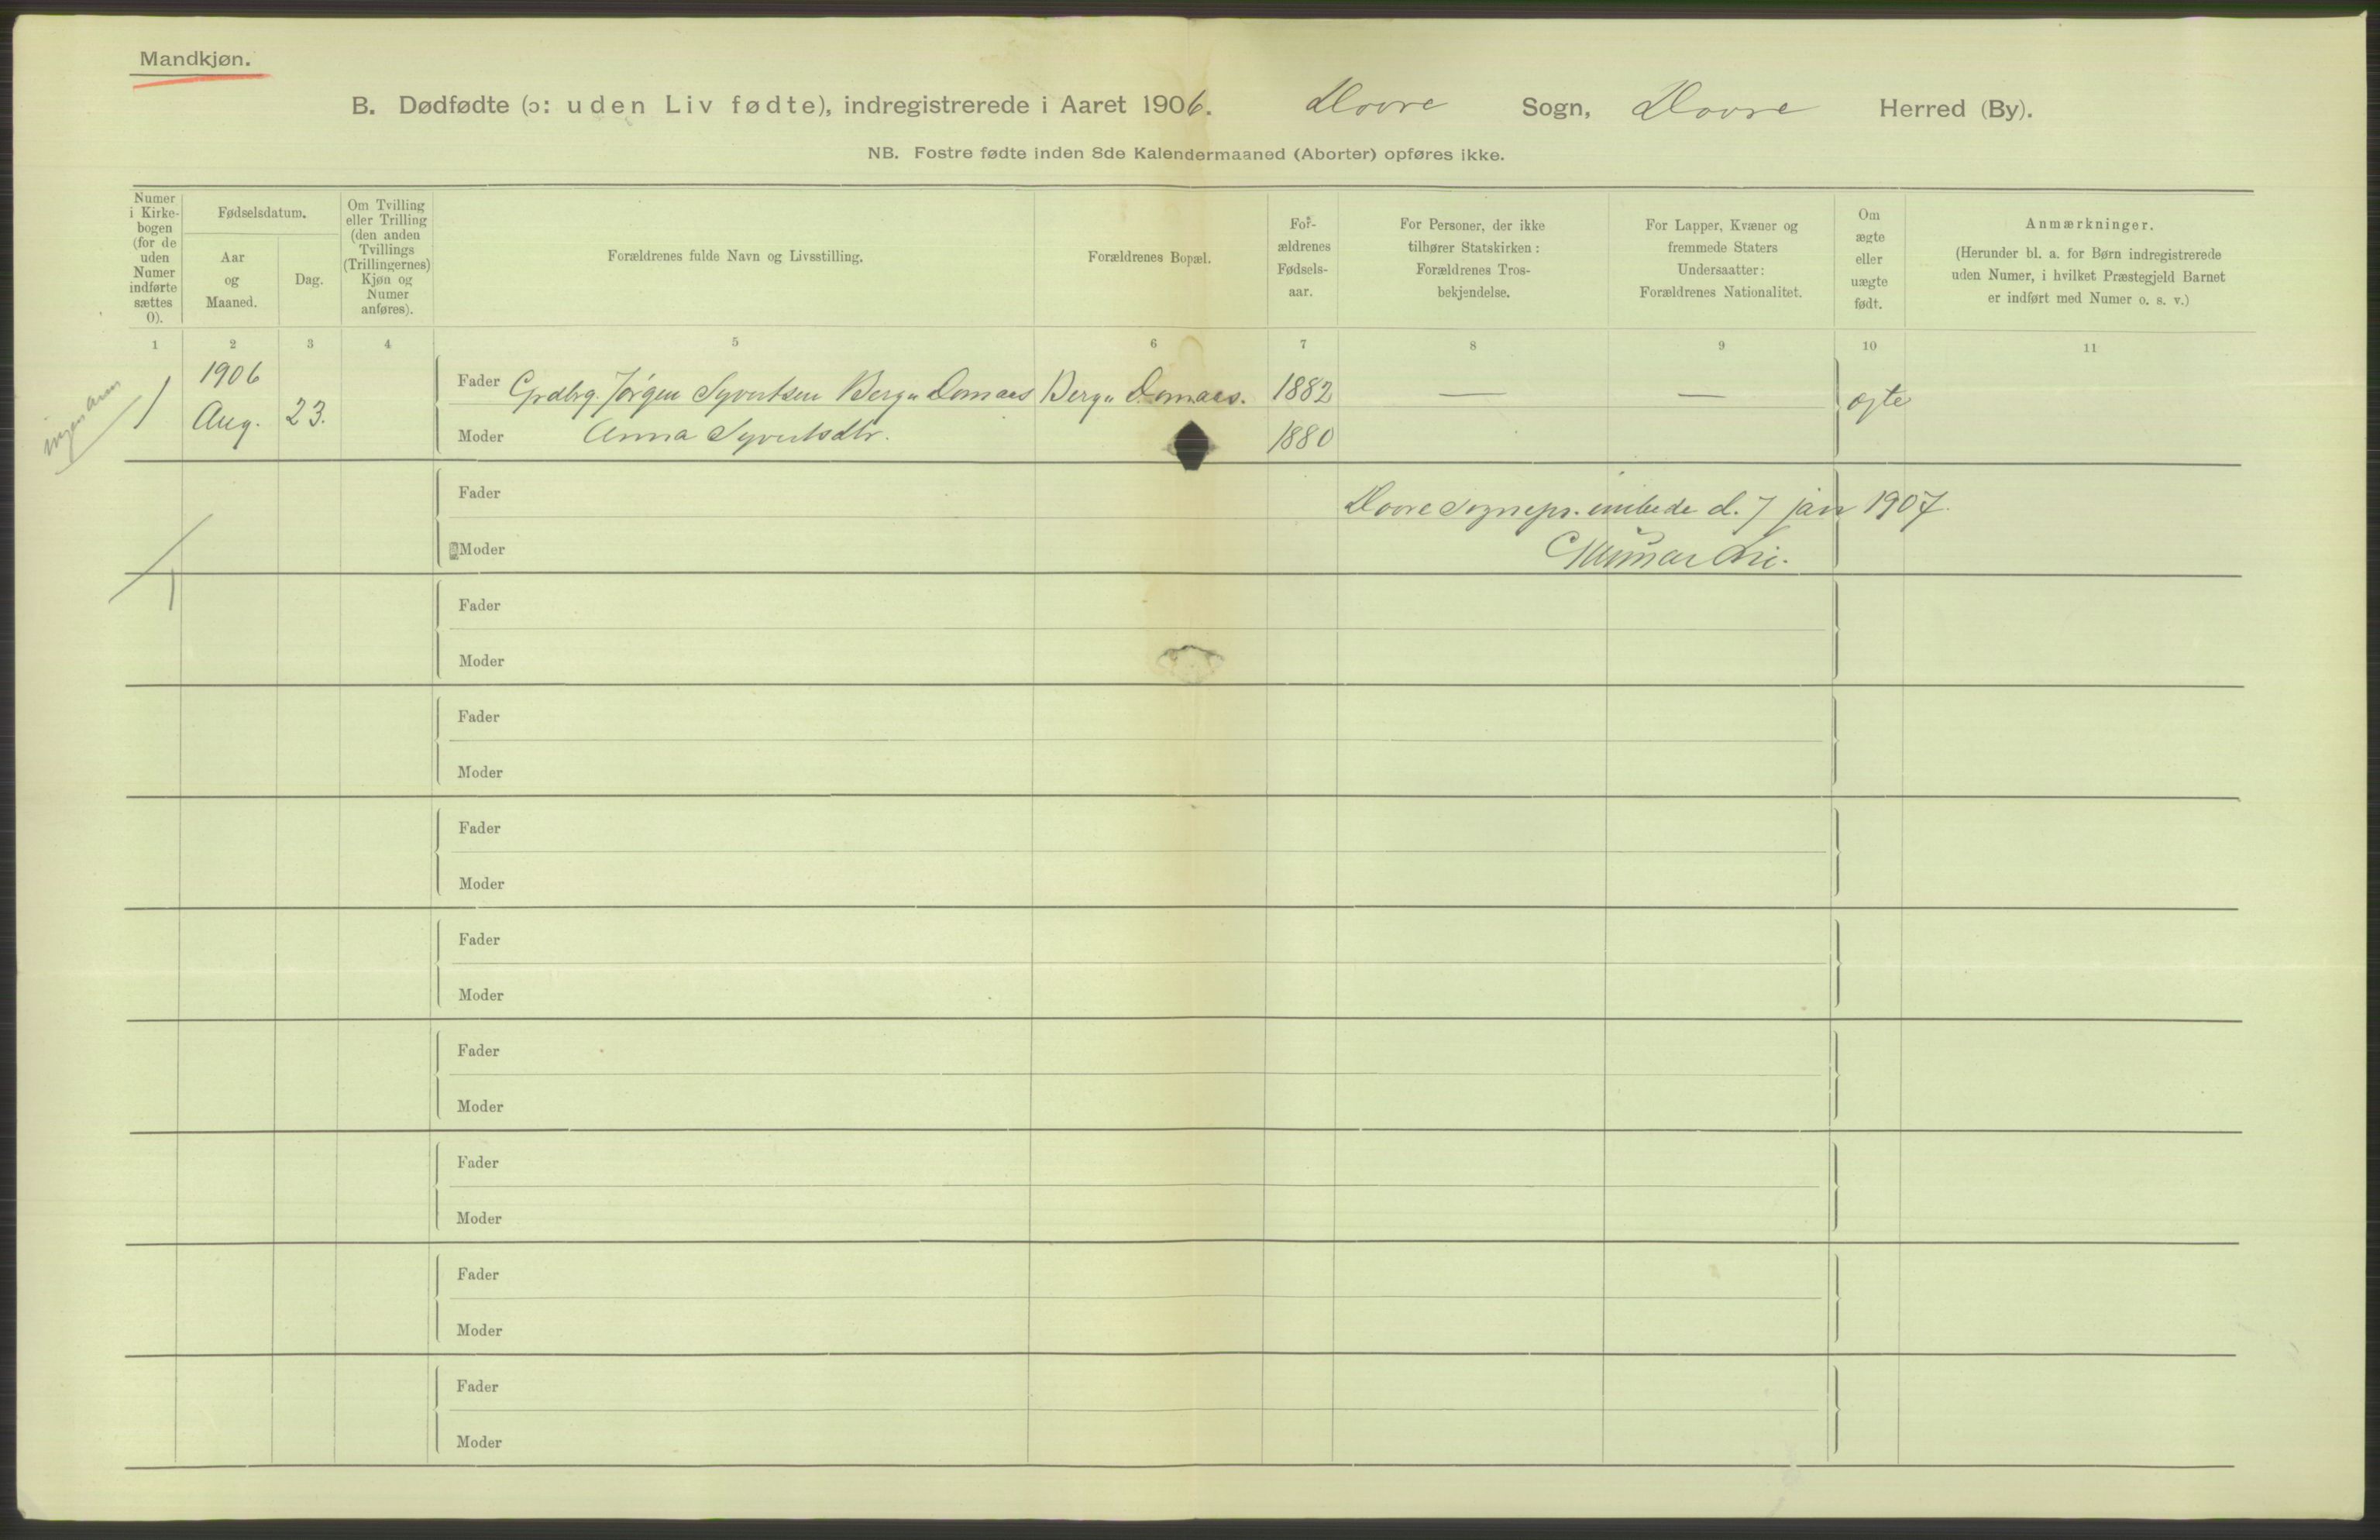 Mandkjøn.
B. Dødfødte (ɔ: uden Liv fødte), indregistrerede i Aaret 1906. Dovre Sogn, Dovre Herred (By).
NB. Fostre fødte inden 8de Kalendermaaned (Aborter) opføres ikke.
Numer i Kirke-bogen (for de uden Numer indførte sættes 0).
Fødselsdatum.
Aar og Maaned.
Dag.
Om Tvilling eller Trilling (den anden Tvillings (Trillingernes) Kjøn og Numer anføres).
Forældrenes fulde Navn og Livsstilling.
Forældrenes Bopæl.
For-ældrenes Fødsels-aar.
For Personer, der ikke tilhører Statskirken: Forældrenes Tros-bekjendelse.
For Lapper, Kvæner og fremmede Staters Undersaatter: Forældrenes Nationalitet.
Om ægte eller uægte født.
Anmærkninger.
(Herunder bl. a. for Børn indregistrerede uden Numer, i hvilket Præstegjeld Barnet er indført med Numer o. s. v.)
1 2 3 4 5 6 7 8 9 10 11
1 1906 Aug. 23.
Fader Grdbrg. Jørgen Syvertsen Berg " Domaas Berg " Domaas. 1882 — — ægte
Moder Anna Syvertsdtr. 1880
Fader
Dovre sognepr. embede d. 7 jan 1907.
Moder
1
Fader
Moder
Fader
Moder
Fader
Moder
Fader
Moder
Fader
Moder
Fader
Moder
Fader
Moder
Fader
Moder